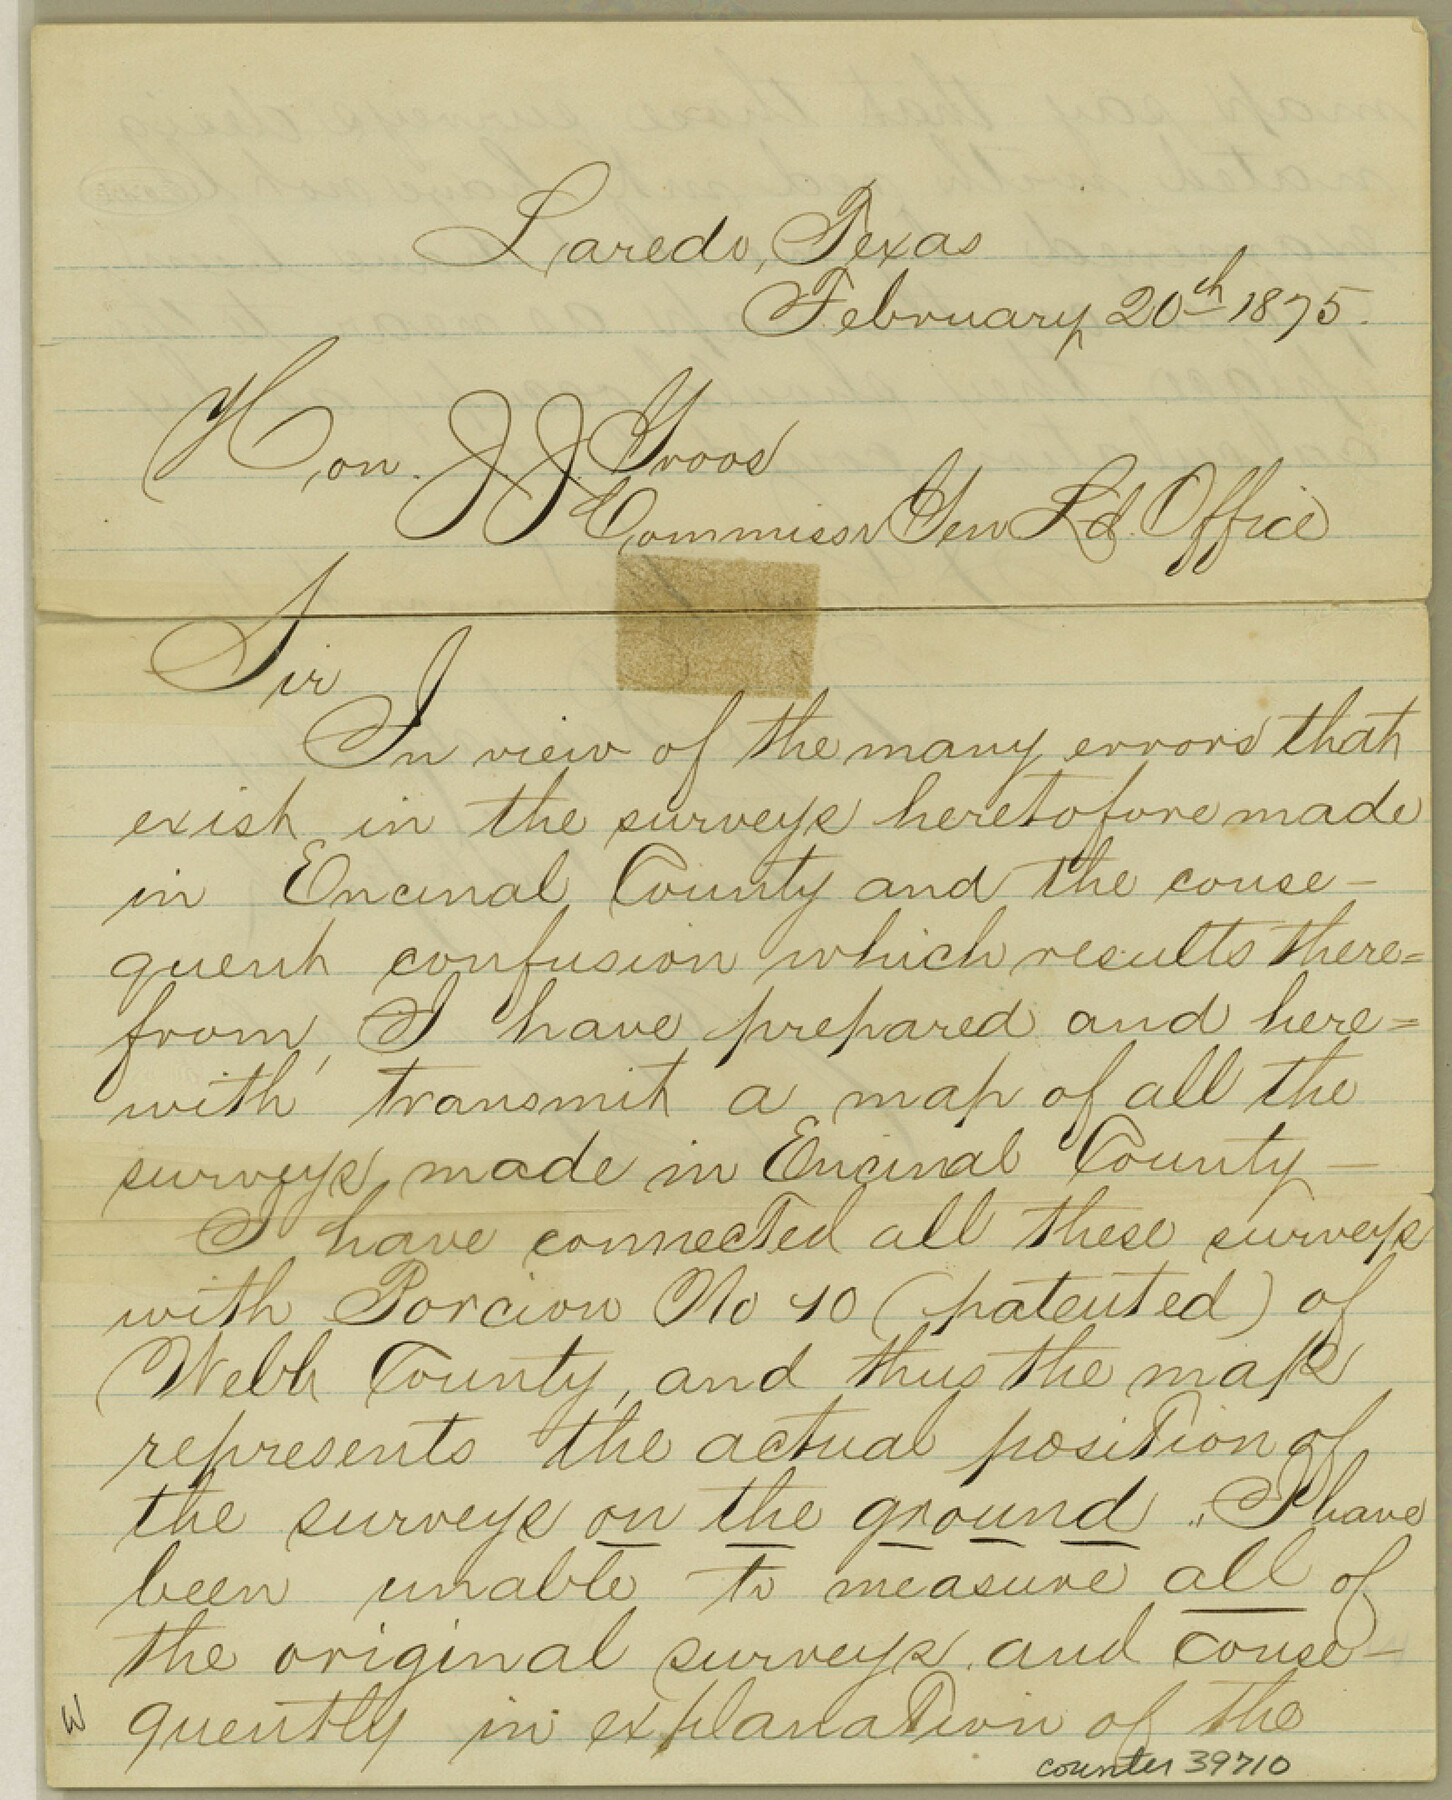 Laredo, Texas
February 20th 1875.
Hon. J J Groos
Commissr Gen Ld. Office
Sir
In view of the many errors that
exist in the surveys heretofore made
in Encinal County and the conse-
quent confusion which results there=
from, I have prepared and here=
with transmit a map of all the
surveys made in Encinal County —
I have connected all these surveys
with Porcion No 10 (patented) of
Webb County, and thus the map
represents the actual position of
the surveys on the ground. I have
been unable to measure all of
the original surveys and conse-
quently in explanation of the
counter 39710